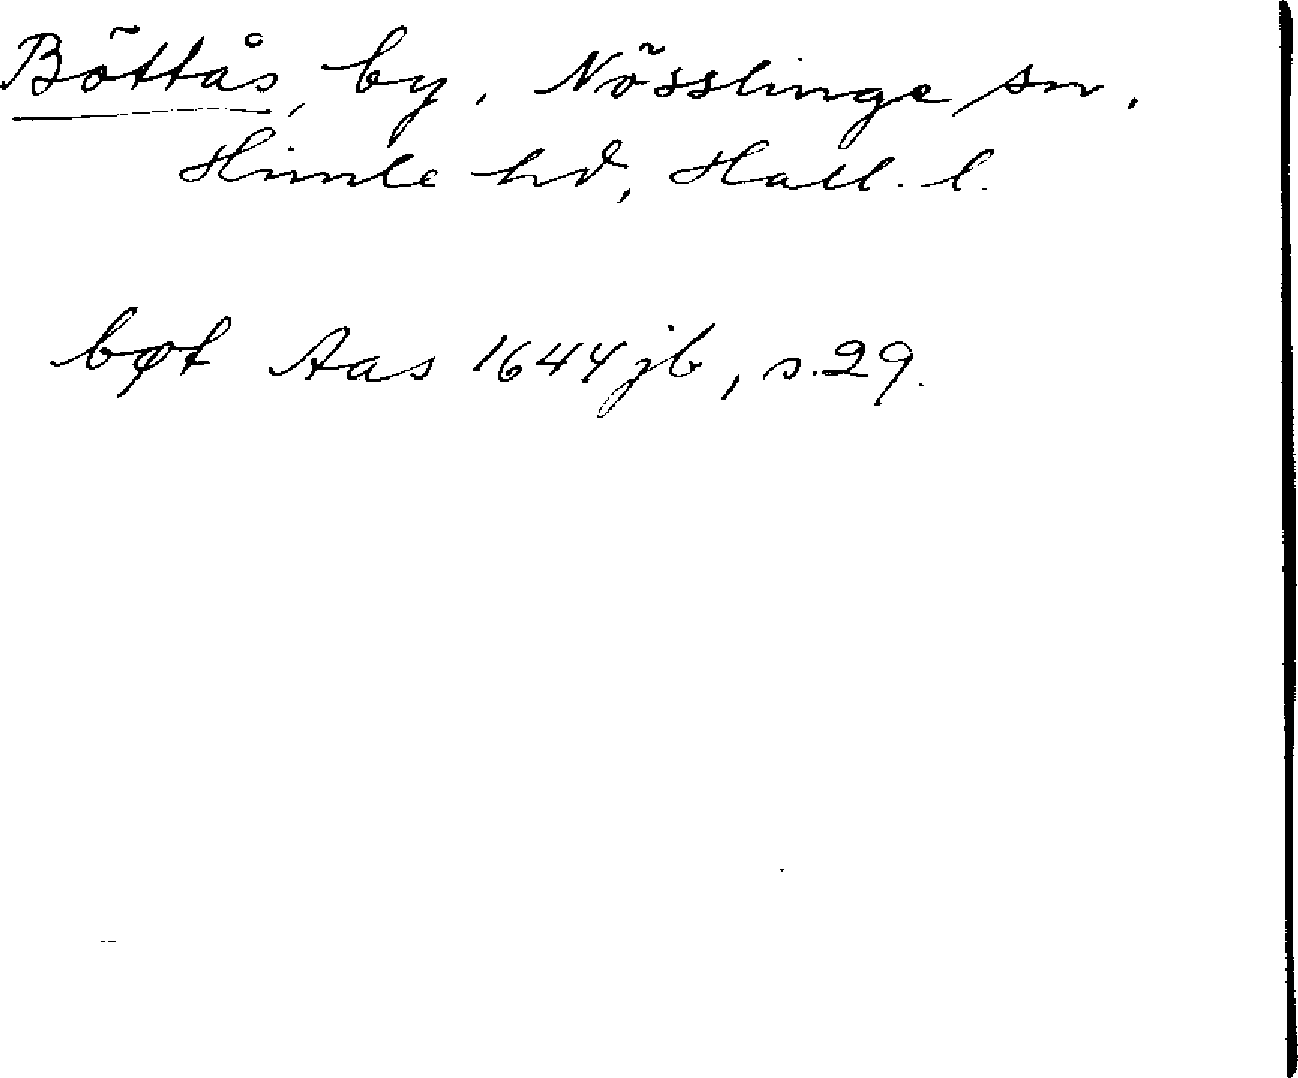 Böttås, by, Nösslinge sn,
Himle hd, Hall. l.
bøt Aas 1644 jb, s. 29.